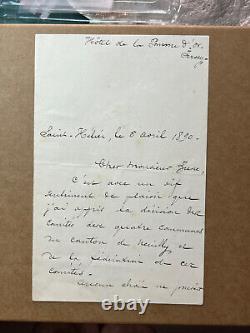 Hôtel de la Pomme d'or.
Jersey
Saint-Hélier, le 8 avril 1890.
Cher Monsieur
C'est avec un vif
sentiment de plaisir que
j'ai appris la décision des
comités des quatre communes
du canton de Neuilly et
de la fédération de ces
comités.
Aucun choix ne pouvait